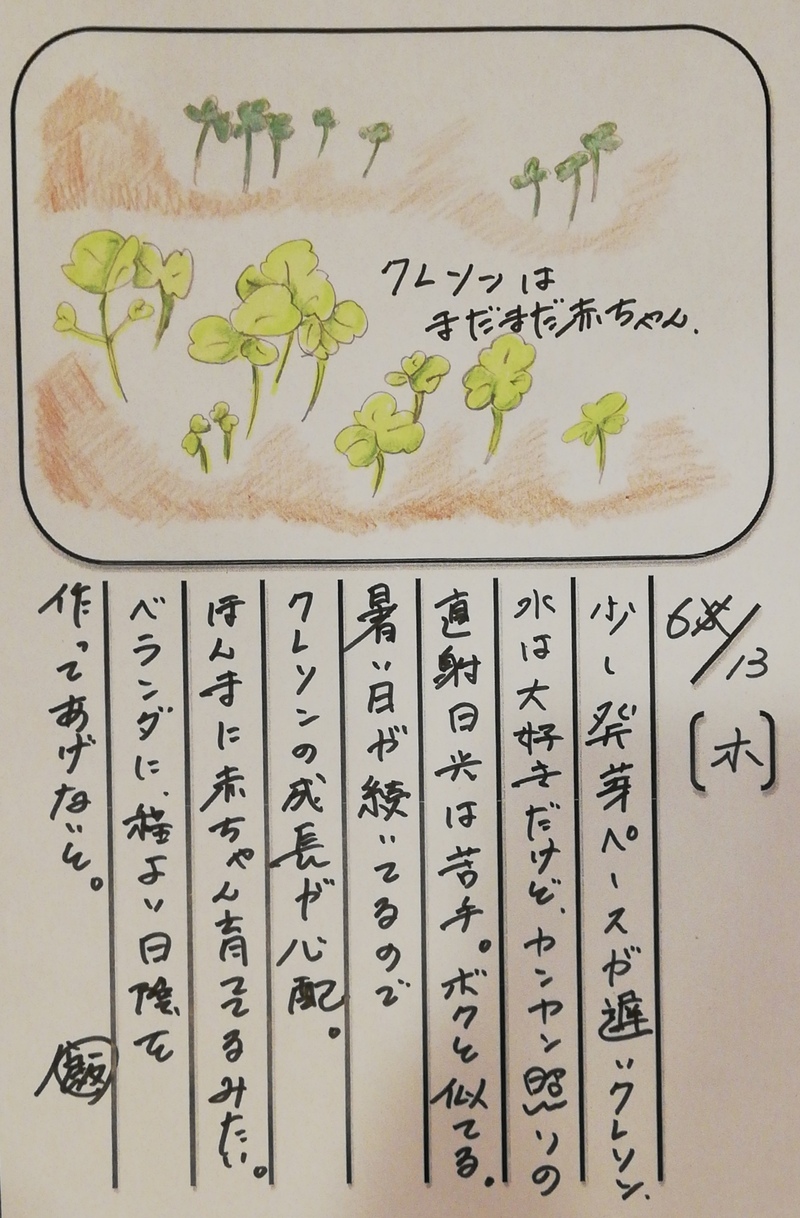 クレソンは
まだまだ赤ちゃん.
6/13
[木]
少し発芽ペースが遅いクレソン.
水は大好きだけど、カンカン照りの
直射日光は苦手。ボクと似てる。
暑い日が続いてるので
クレソンの成長が心配。
ほんまに赤ちゃん育ててるみたい。
ベランダに、程よい日陰を
作ってあげないと。